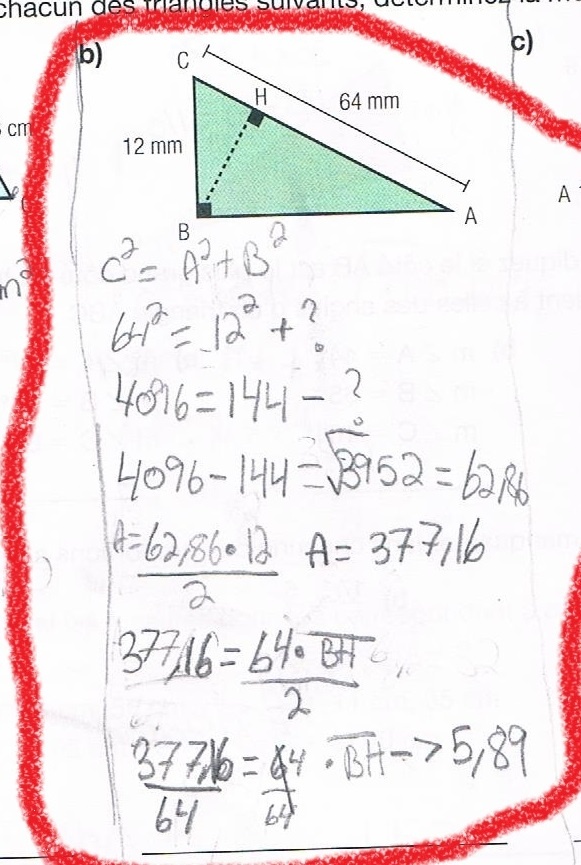 chacun des triangles suivants, déterminez la
b)
c)
C
H
64 mm
12 mm
cm
A
B
A
C² = A² + B²
64² = 12² + ?
4096 = 144 - ?
4096 - 144 = √3952 = 62,86
A = 62,86 • 12 / 2   A = 377,16
377,16 = 64 • BH / 2
377,16 / 64 = 64 / 64 • BH -> 5,89